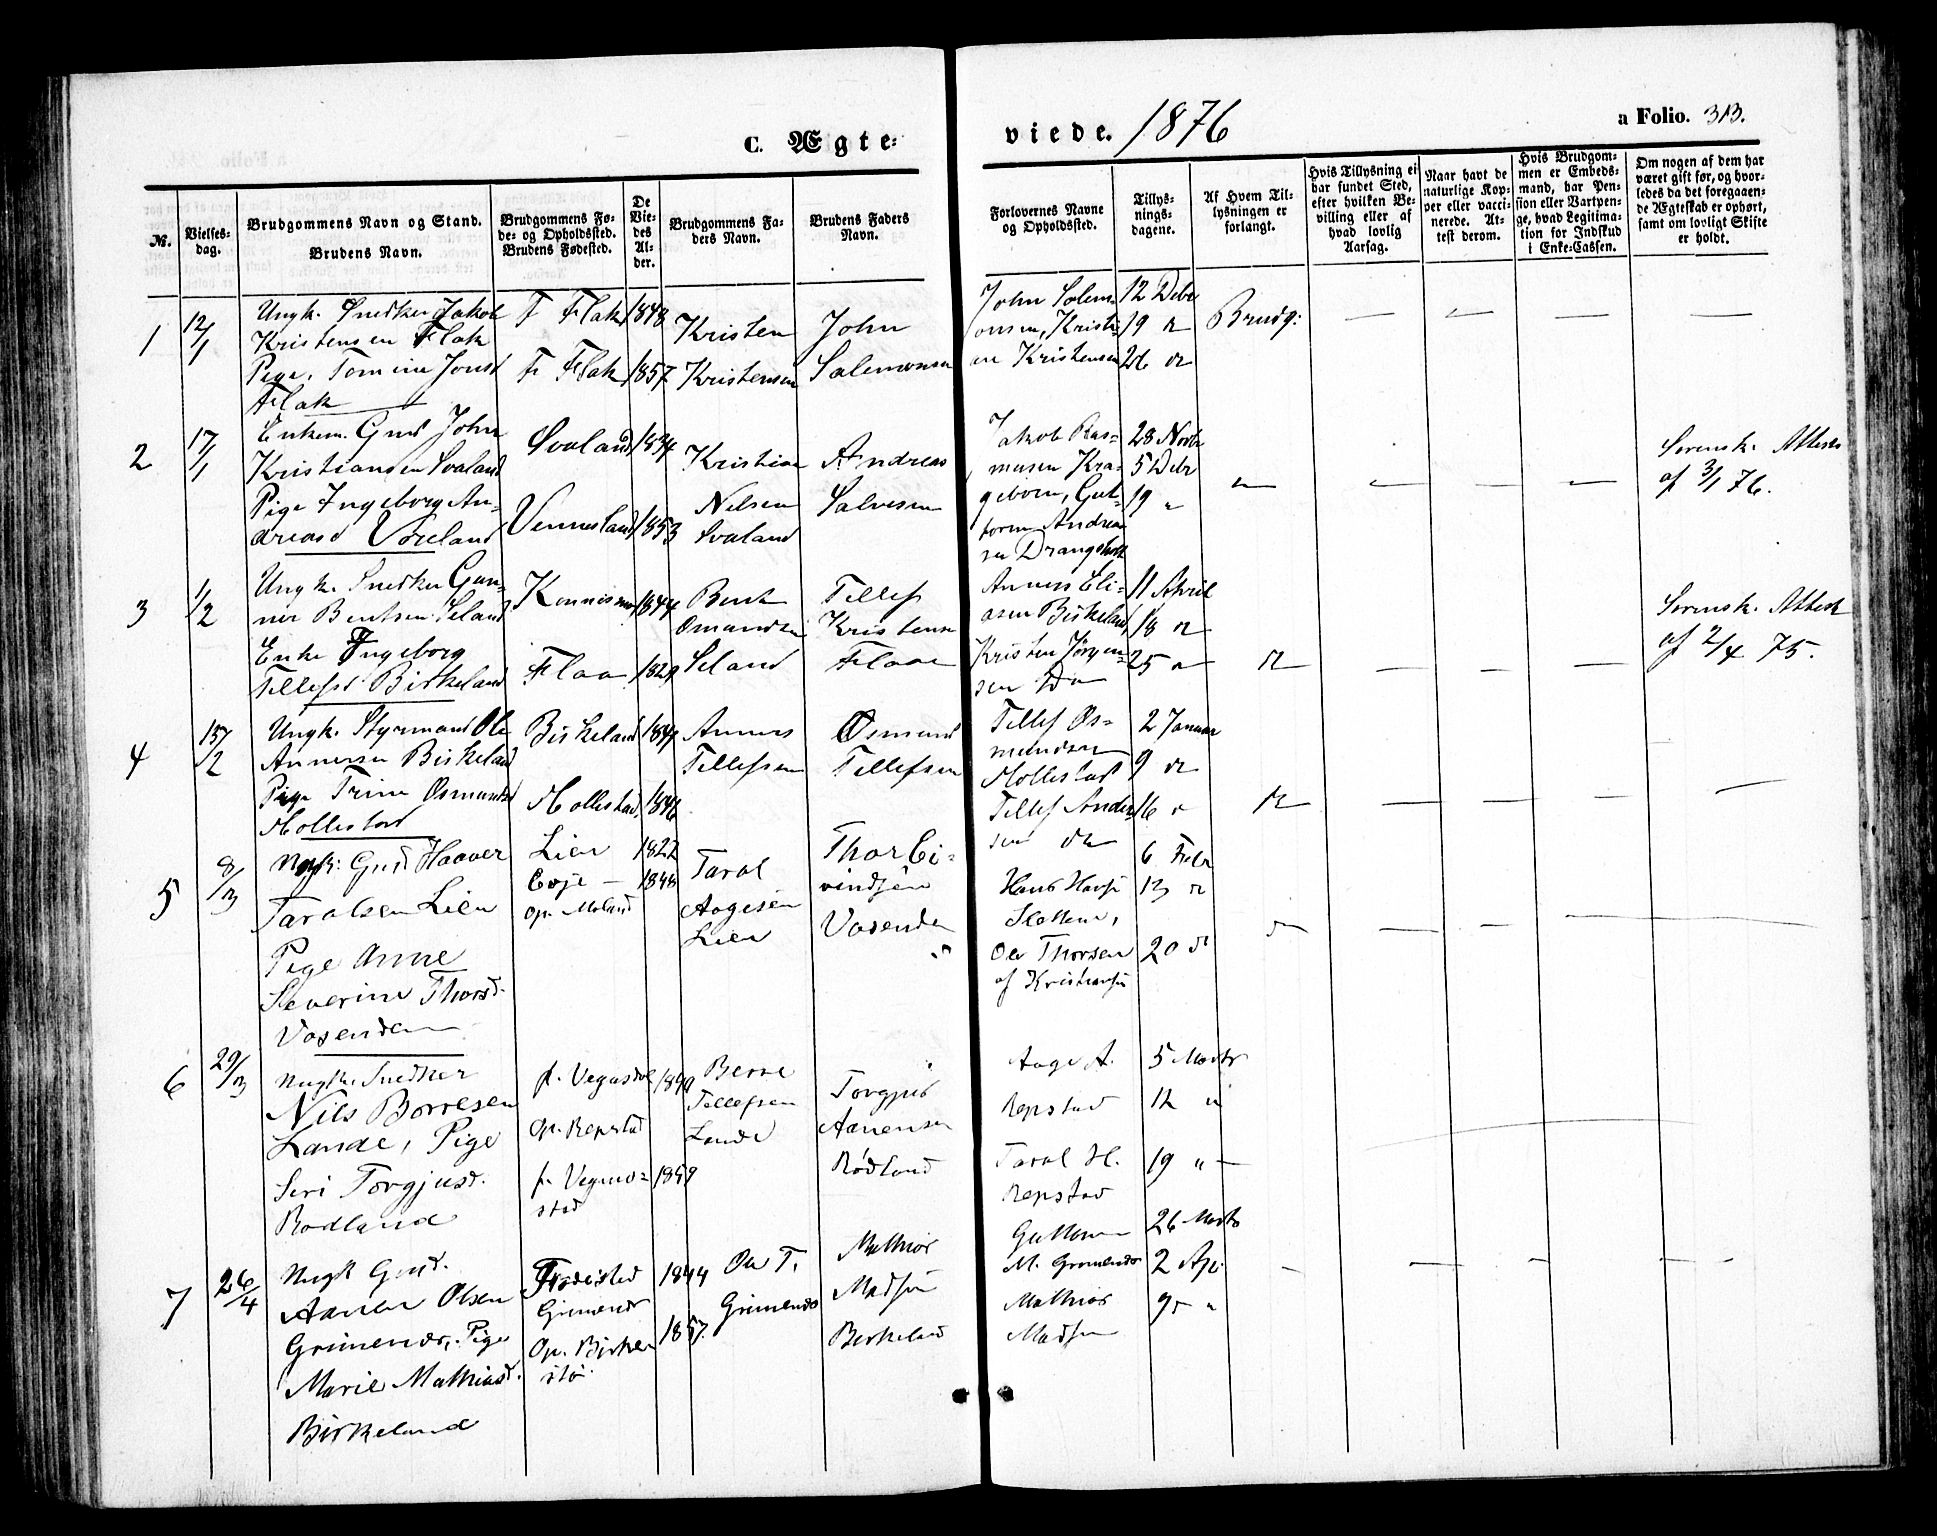 C. Ægte-
viede. 1876
a Folio. 313.
№.
Vielses-
dag.
Brudgommens Navn og Stand.
Brudens Navn.
Brudgommens Fø-
de- og Opholdssted.
Brudens Fødested.
De
Vie-
des
Al-
der.
Brudgommens Fa-
ders Navn.
Brudens Faders
Navn.
Forlovernes Navne
og Opholdssted.
Tillys-
nings-
dagene.
Af Hvem Til-
lysningen er
forlangt.
Hvis Tillysning ei
har fundet Sted,
efter hvilken Be-
villing eller af
hvad lovlig
Aarsag.
Naar havt de
naturlige Kop-
per eller vacci-
nerede. At-
test derom.
Hvis Brudgom-
men er Embeds-
mand, har Pen-
sion eller Vartpen-
ge, hvad Legitima-
tion for Indskud
i Enke-Cassen.
Om nogen af dem har
været gift før, og hvor-
ledes da det foregaaen-
de Ægteskab er ophørt,
samt om lovligt Skifte
er holdt.
1
12/1
Ungk. Snedker Jakob
Kristensen Flak
Pige, Tomine Jonsd
Flak
F Flak
F. Flak
1848
1857
Kristen
Kristensen
John
Salemonsen
John Salem-
onsen, Kristi-
en Kristensen
12 Debr
19 "
26 "
Brudg:
2
17/1
Enkem. Gmd John
Kristiansen Svaland
Pige Ingeborg An-
dreasd Voreland
Svaland
Vennesland
1834
1853
Kristian
Nilsen
Svaland
Andreas
Salvesen
Jakob Ras-
musen Kra-
geboen, Gut-
torm Andrea-
sen Drangsholt
28 Novbr
5 Debr
19 "
Sorensk. Attest
af 3/1 76.
3
1/2
Ungk. Snedker Gun-
ner Bentsen Seland
Enke Ingeborg
Tellefsd Birkeland
Konnismo
Flaa
1844
1829
Bent
Osmundsen
Seland
Tellef
Kristensen
Flaa
Anners Eli-
asen Birkeland,
Kristen Jørgen-
sen Do
11 April
18 "
25 "
Sorensk. Attest
af 2/4 75.
4
15/2
Ungk. Styrmand Ole
Annersen Birkeland
Pige Trine Osmundsd
Mollestad
Birkeland
Mollestad,
1849
1846
Anners
Tellefsen
Osmund
Tellefsen
Tellef Os-
mundsen
Mollestad
Tellef Ander-
sen do
2 Januar
9 "
16 "
5
8/3
Ungk: Gmd Haaver
Taralsen Lien
Pige Anne
Severine Thorsd.
Vosenden
Lien
Evje –
op. Moland
1822
1848
Taral
Aagesen
Lien
Thor Ei-
vindsen
Vosenden
Hans Hansen
Slotten,
Ole Thorsen
af Kristiansand
6 Febr
13 "
20 "
6
29/3
Ungk. Snedker
Nils Børresen
Lande, Pige
Siri Torgjusd.
Rødland
f. Vegusdal
op. Repstad
f. Vegus-
stad
1849
Børre
Tellefsen
Lande
Torgjus
Aanensen
Rødland
Aage A.
Repstad
Taral H.
Repstad
5 Marts
12 "
19 "
7
26/4
Ungk Gmd.
Aanen Olsen
Grimenæs, Pige
Marie Mathiasd.
Birkeland
Grimenæs
Op. Birken-
1844
1857.
Ole T.
Grimenæs
Mathias
Madsen
Birkeland
Guttorm
M. Grimenæs
Mathias
Madsen
26 Marts
2 Apr.
9 "